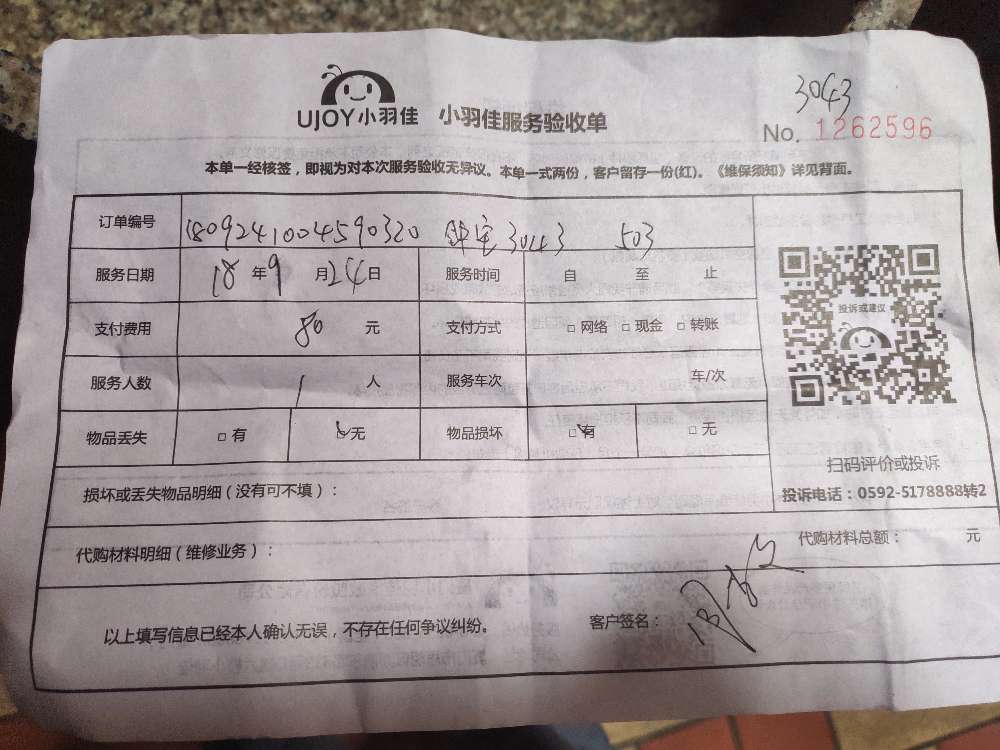 3043
UJOY小羽佳 小羽佳服务验收单
No. 1262596
本单一经核签，即视为对本次服务验收无异议。本单一式两份，客户留存一份(红)。《维保须知》详见背面。
订单编号 1809241004590320 3043 503
服务日期 18年9月24日 服务时间 自 至 止
投诉或建议
支付费用 80 元 支付方式 □网络 □现金 □转账
服务人数 1 人 服务车次 车/次
物品丢失 □有 □无 物品损坏 □有 □无
扫码评价或投诉
损坏或丢失物品明细（没有可不填）：
投诉电话：0592-5178888转2
代购材料明细（维修业务）： 代购材料总额： 元
以上填写信息已经本人确认无误，不存在任何争议纠纷。 客户签名：